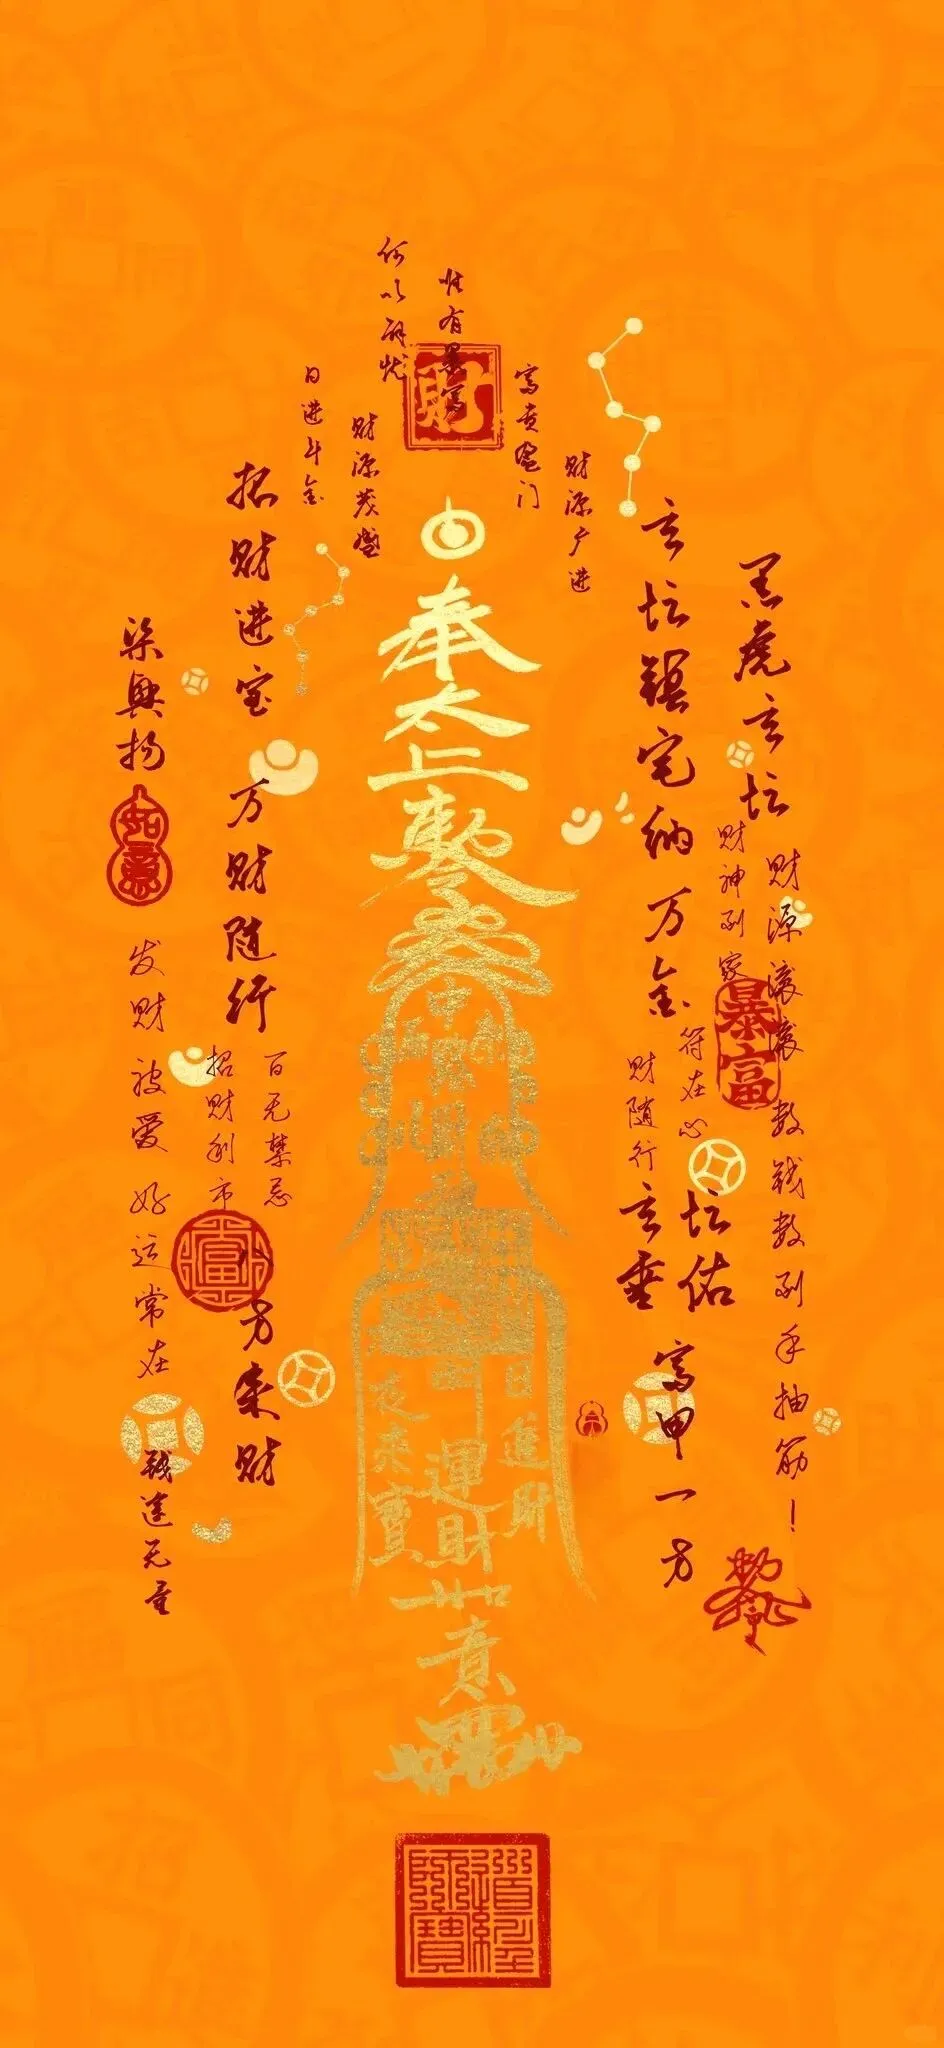 何以解忧
惟有暴富
財
日进斗金
财源茂盛
富贵盈门
财源广进
招财进宝
万财随行
八方来财
玄坛镇宅纳万金
黑虎玄坛
柒興扬
如意
发财被爱
好运常在
钱途无量
招财利市
百无禁忌
财神到家
财源滚滚
数钱数到手抽筋！
暴富
符在心
财随行
玄坛
垂佑
富甲一方
奉
太上
日進財
運財
夜来寶
道經師寶